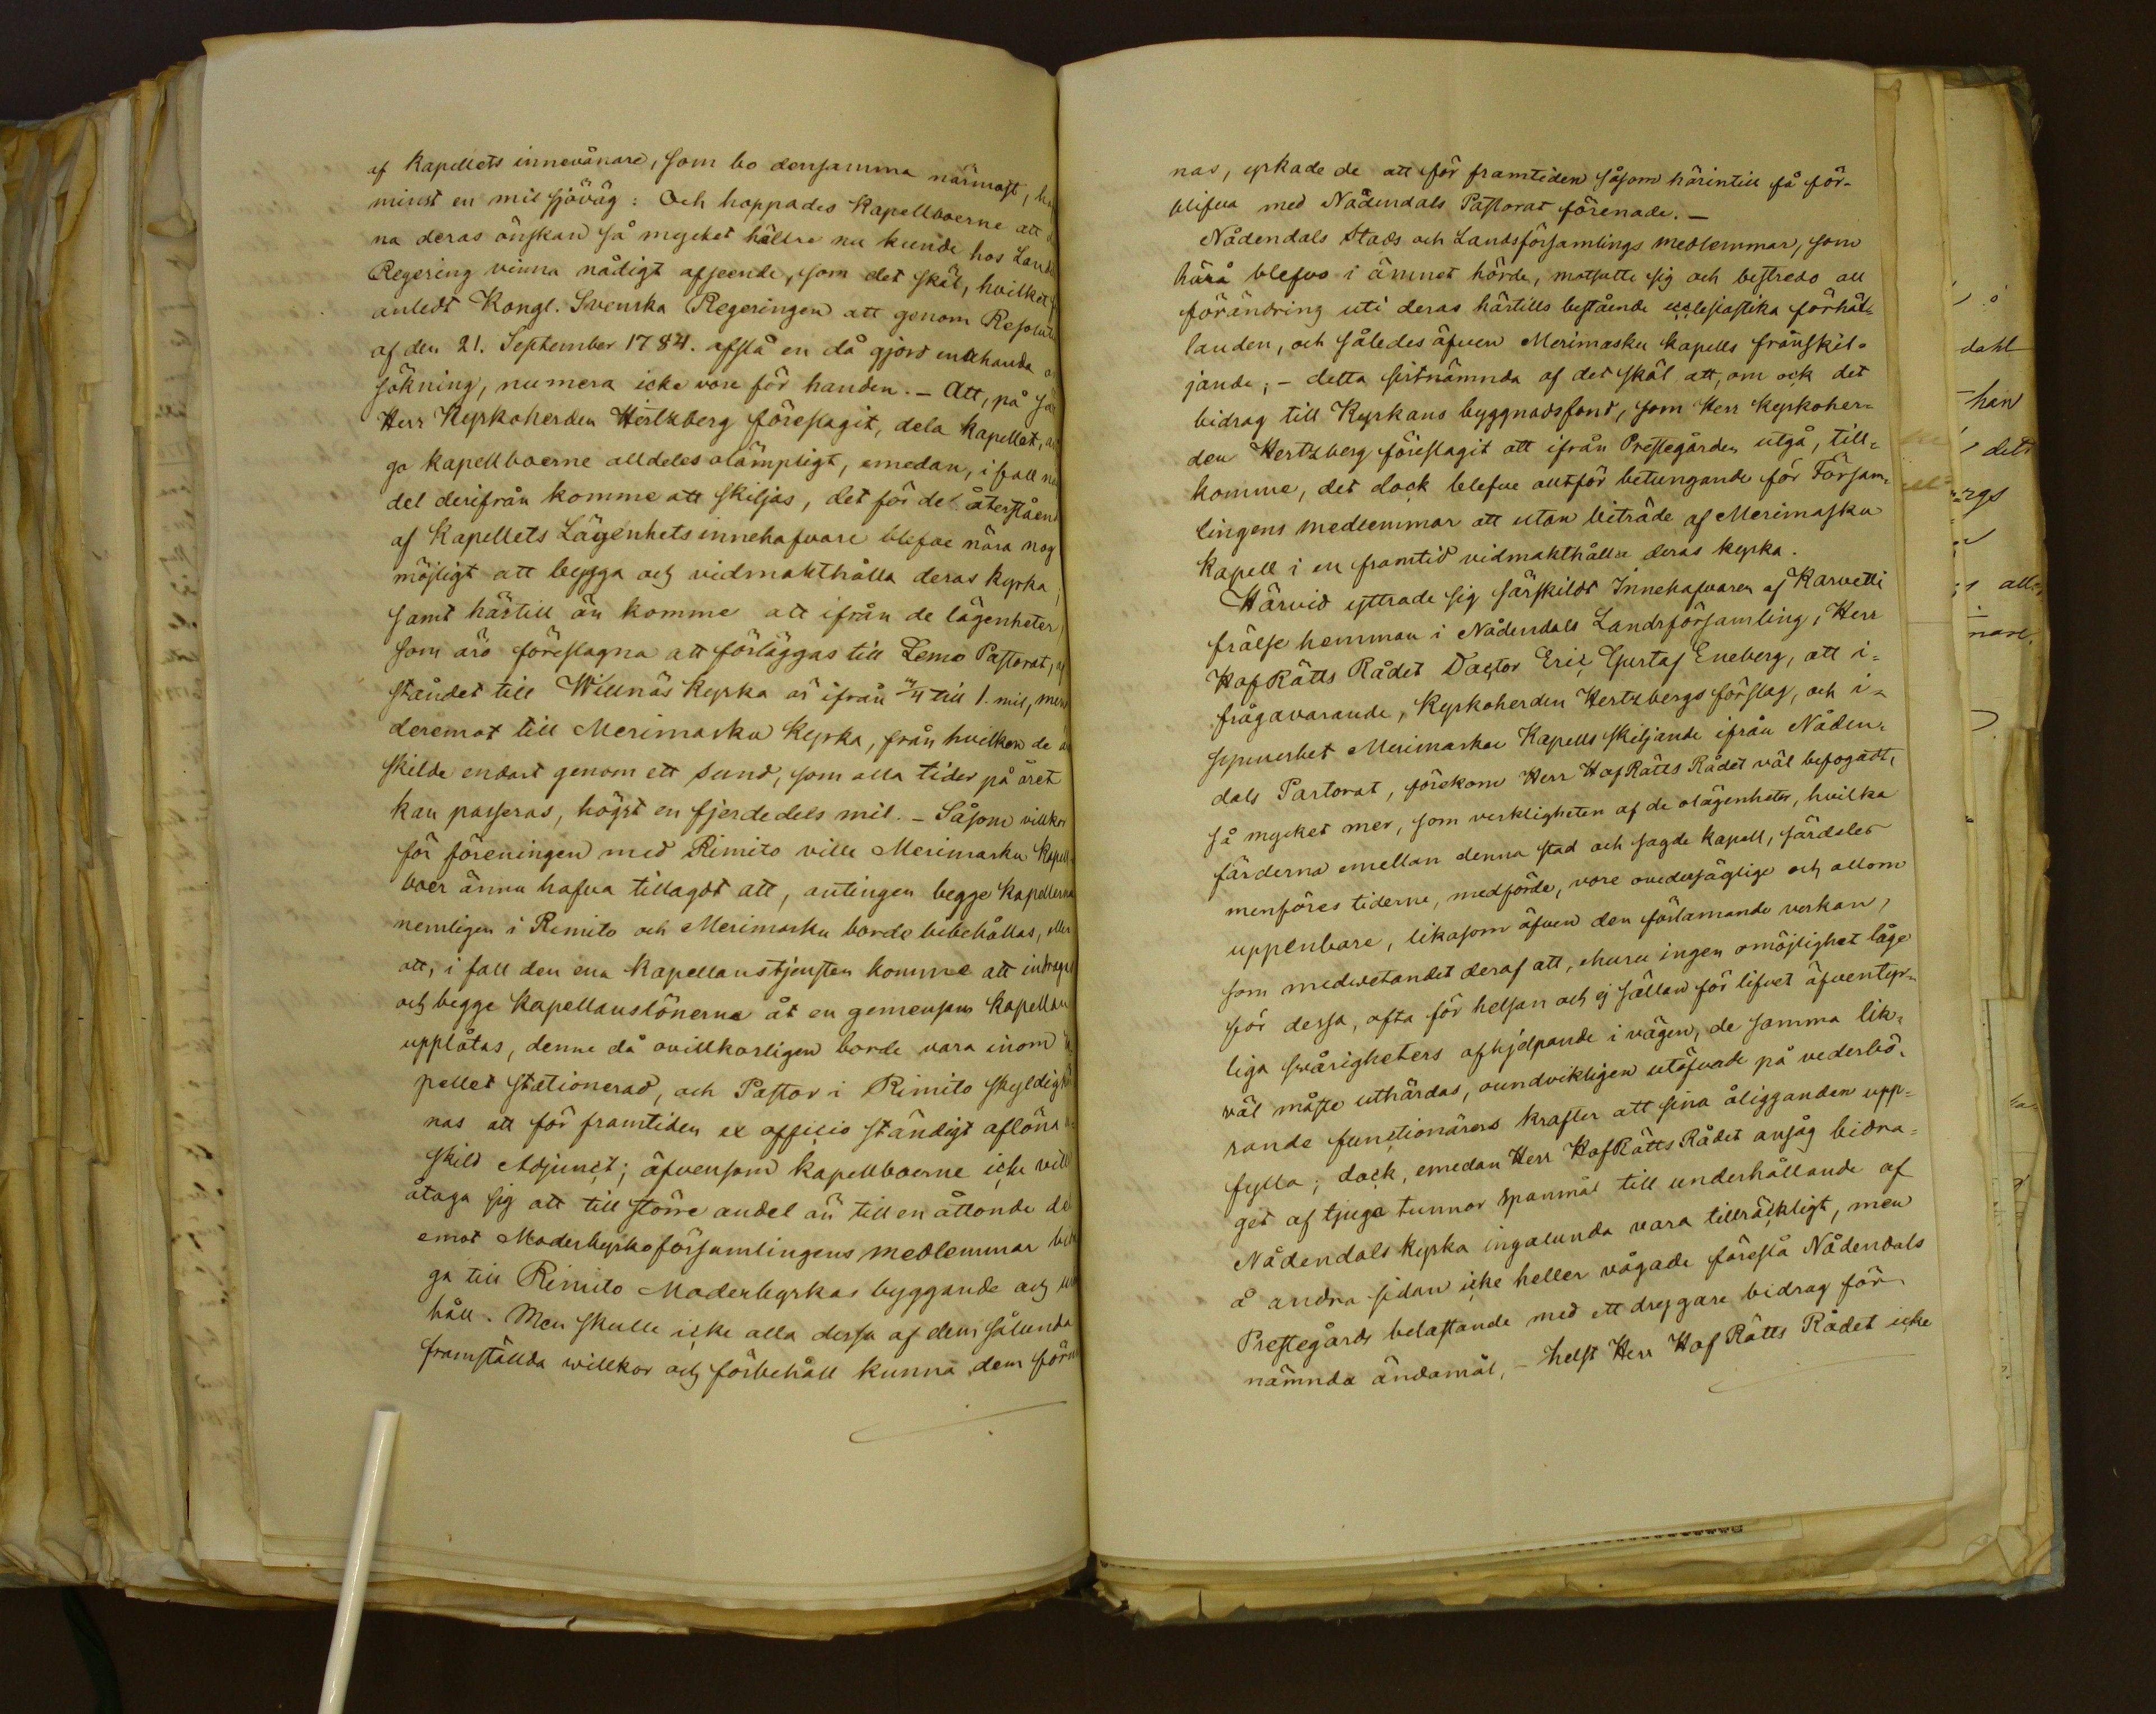 af Kapellets innevånare, som bo densamma närmast,
minst en mil sjöväg: Och hoppades Kapellboerne att
na deras önskan så mycket hällre nu kunde hos Lands
Regering vinna nådigt afseende, som det skäl, hvilket
anledt Kongl. Svenska Regeringen att genom Resolut
af den 21. September 1784. afslå en då gjord enahanda
sökning, numera icke vore för handen. – Att, på sä
Herr Kyrkoherden Hertzberg föreslagit, dela Kapellet,
go Kapellboerne alldeles olämpligt, emedan, i fall nå
del derifrån komme att skiljas, det för de återståen
af Kapellets Lägenhetsinnehafvare blefve nära nog
möjligt att bygga och vidmakthålla deras kyrka,
samt härtill än komme att ifrån de lägenheter,
som äro föreslagna att förläggas till Lemo Pastorat, af
ståndet till Willnäs Kyrka är ifrån 3/4 till 1. mil, men
deremot till Merimasku Kyrka, från hvilken de ä
skilde endast genom ett sund, som alla tider på året
kan passeras, högst en fjerdedels mil. – Såsom villkor
för föreningen med Rimito ville Merimasku Kapell-
boer ännu hafva tillagdt att, antingen begge Kapellerna
nemligen i Rimito och Merimasku borde bibehållas, eller
att, i fall den ena Kapellanstjensten komme att indragas
och begge Kapellanslönerna åt en gemensam Kapellan
upplåtas, denne då ovillkorligen borde vara inom
pellet stationerad, och Pastor i Rimito skyldig
nas att för framtiden ex officio ständigt aflöna
skild Adjunct; äfvensom Kapellboerne icke vill
åtaga sig att till större andel än till en åttonde del
emot Moderkyrkoförsamlingens medlemmar bidra
ga till Rimito Moderkyrkas byggande och un
håll. Men skulle icke alla dessa af dem sålunda
framställda willkor och förbehåll kunna dem förun
nas, yrkade de att för framtiden såsom härintill få för-
blifva med Nådendals Pastorat förenade. –
Nådendals Stads och Landsförsamlings medlemmar, som
härå blefvo i ämnet hörde, motsatte sig och bestredo all
förändring uti deras härtills bestående ecclesiastika förhål-
landen, och således äfven Merimasku kapells frånskil-
jande; – detta sistnämnda af det skäl att, om ock det
bidrag till Kyrkans byggnadsfond, som Herr Kyrkoher-
den Hertzberg föreslagit att ifrån Prestegården utgå, till-
komme, det dock blefve alltför betungande för Försam-
lingens medlemmar att utan biträde af Merimasku
Kapell i en framtid vidmakthålla deras kyrka.
Härvid yttrade sig särskildt Innehafvaren af Karvetti
frälse hemman i Nådendals Landsförsamling, Herr
HofRätts Rådet Doctor Eric Gustaf Eneberg, att i-
frågavarande, Kyrkoherden Hertzbergs förslag, och i-
synnerhet Merimasku Kapells skiljande ifrån Nåden-
dals Pastorat, förekom Herr HofRätts Rådet väl befogadt,
så mycket mer, som verkligheten af de olägenheter, hvilka
färderna emellan denna stad och sagde kapell, särdeles
menföres tiderne, medförde, vore ovedersäglige och allom
uppenbare, likasom äfven den förlamande verkan,
som medvetandet deraf att, ehuru ingen omöjlighet låge
för dessa, ofta för helsan och ej sällan för lifvet äfventyr-
liga svårigheters afhjelpande i vägen, de samma lik-
väl måste uthärdas, oundvikligen utöfvade på vederbö-
rande functionärers krafter att sina åligganden upp-
fylla; dock, emedan Herr HofRätts Rådet ansåg bidra-
get af tjugo tunnor spanmål till underhållande af
Nådendals Kyrka ingalunda vara tillräckligt, men
å andra sidan icke heller vågade föreslå Nådendals
Prestegårds belastande med ett drygare bidrag för
nämnda ändamål, – helst Herr HofRätts Rådet icke
dahl
han
det
rgs
all